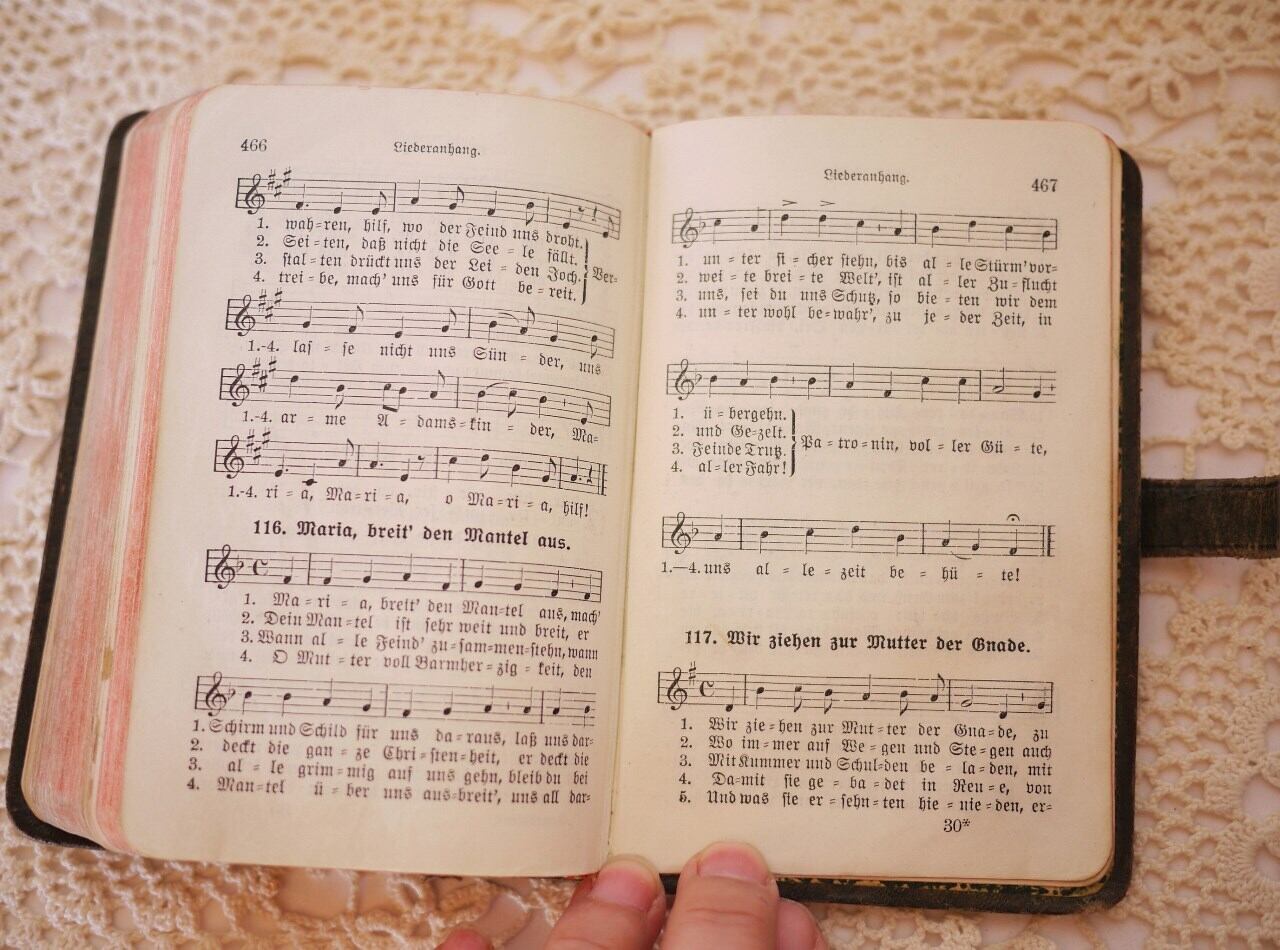 466
Liederanhang.
1. wah=ren, hilf, wo der Feind uns droht.
2. Sei=ten, daß nicht die See=le fällt.
3. stal=ten drückt uns der Lei=den Joch. Ver=
4. trei=be, mach' uns für Gott be=reit.
1.-4. las=se nicht uns Sün=der, uns
1.-4. ar=me A=dams=kin=der, Ma=
1.-4. ri=a, Ma=ri=a, o Ma=ri=a, hilf!
116. Maria, breit' den Mantel aus.
1. Ma=ri=a, breit' den Man=tel aus, mach'
2. Dein Man=tel ist sehr weit und breit, er
3. Wann al=le Feind' zu=sam=men=stehn, wann
4. O Mut=ter voll Barmher=zig=keit, den
1. Schirm und Schild für uns da=raus, laß uns dar=
2. deckt die gan=ze Chri=sten=heit, er deckt die
3. al=le grim=mig auf uns gehn, bleib du bei
4. Man=tel ü=ber uns aus=breit', uns all dar=
Liederanhang.
467
1. un=ter si=cher stehn, bis al=le Stürm' vor=
2. wei=te brei=te Welt', ist al=ler Zu=flucht
3. uns, sei du uns Schutz, so bie=ten wir dem
4. un=ter wohl be=wahr', zu je=der Zeit, in
1. ü=bergehn.
2. und Ge=zelt. Pa=tro=nin, vol=ler Gü=te,
3. Feinde Trutz.
4. al=ler Fahr!
1.—4. uns al=le=zeit be=hü=te!
117. Wir ziehen zur Mutter der Gnade.
1. Wir zie=hen zur Mut=ter der Gna=de, zu
2. Wo im=mer auf We=gen und Ste=gen auch
3. Mit Kummer und Schul=den be=la=den, mit
4. Da=mit sie ge=ba=det in Reu=e, von
5. Und was sie er=sehn=ten hie=nie=den, er=
30*